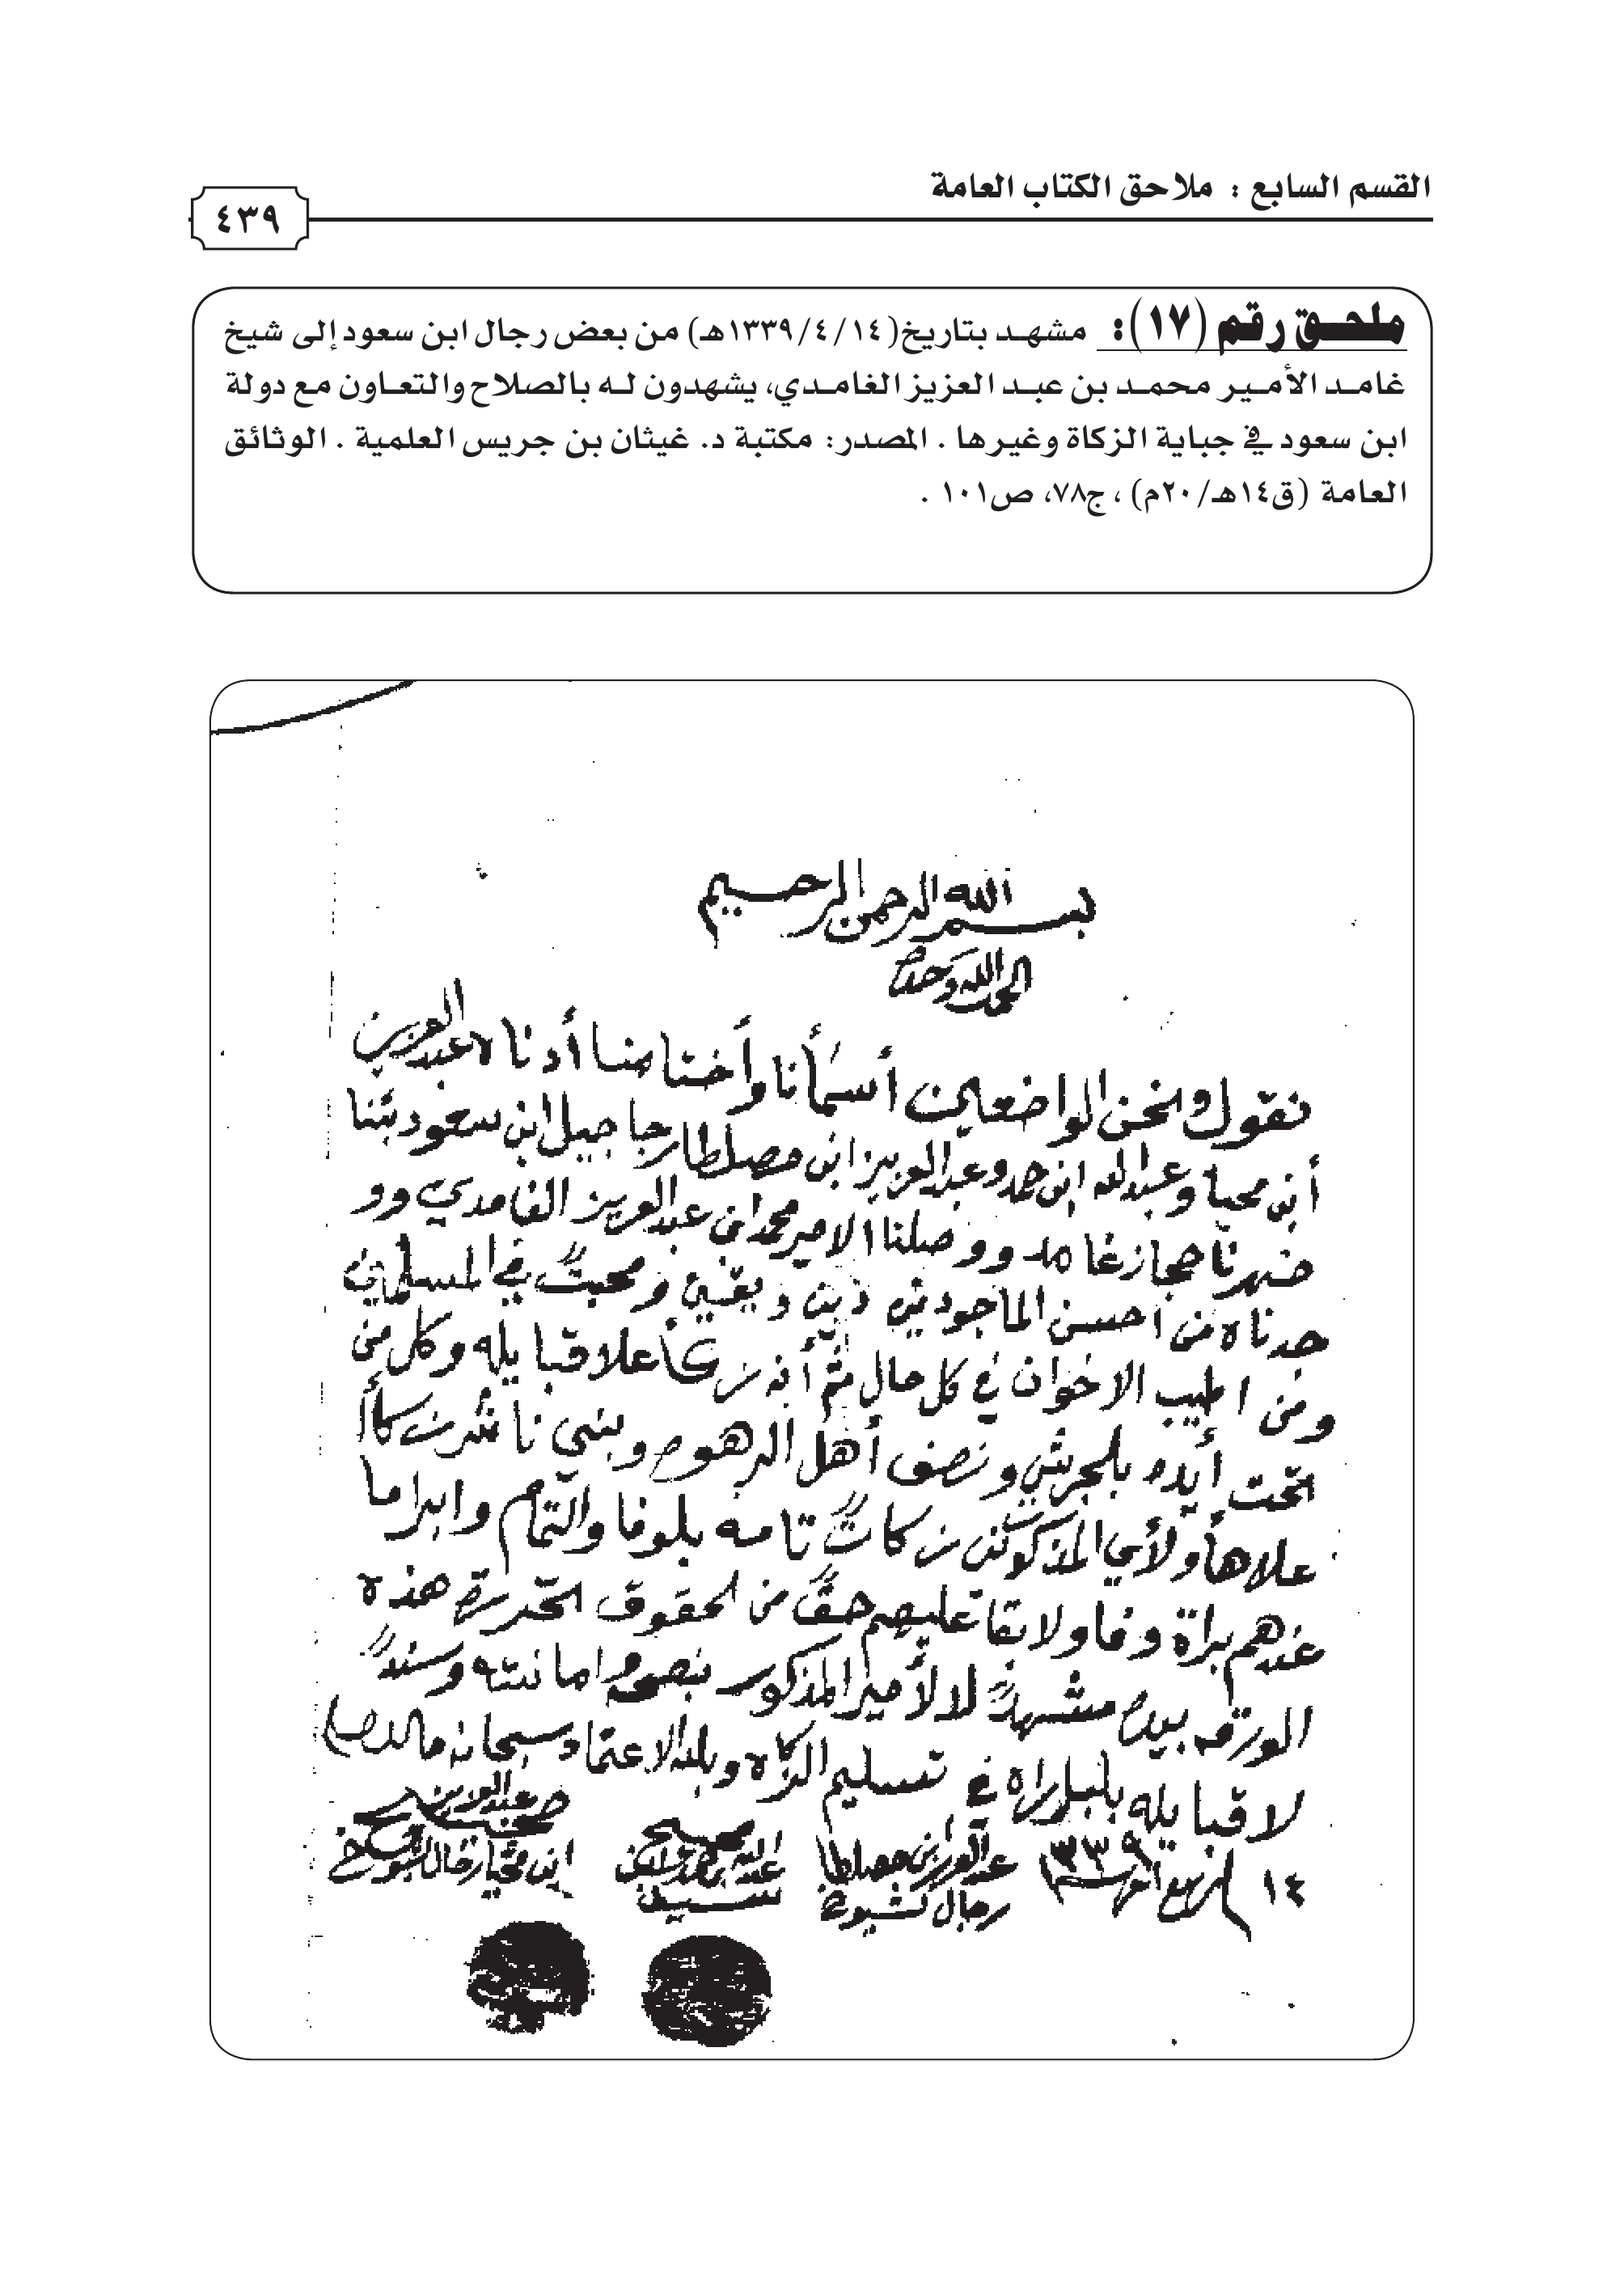 القسم السابع : ملاحق الكتاب العامة
٤٣٩
ملحق رقم (١٧): مشهد بتاريخ(١٤/٤/١٣٣٩هـ) من بعض رجال ابن سعود إلى شيخ
غامد الأمير محمد بن عبد العزيز الغامدي، يشهدون له بالصلاح والتعاون مع دولة
ابن سعود في جباية الزكاة وغيرها . المصدر: مكتبة د. غيثان بن جريس العلمية . الوثائق
العامة (ق١٤هـ/٢٠م) ، ج٧٨، ص١٠١ .
بسم الله الرحمن الرحيم
الحمد لله وحده
نقول ونحن الواضعين أسمأنا وأختامنا أدناه عبدالعزيز
أبن محيا وعبدالله ابن حمد وعبدالعزيز ابن مصلطا رجاجيل ابن سعود بثنا
حجاز غامد ووصلنا الامير محمد ابن عبدالعزيز الغامدي وو
جدناه من أحسن الماجودين دين ويقين ومحبتً في المسلمين
ومن اطيب الاخوان في كل حال ثم أنه علا قبايله وكل من
تحت أيده بلجرشي ونصف أهل الرهوه وبني ناشر
علا المذكوين زكاتً تامه بلوفا والتمام وابرا ما
عندهم براة وفا ولا بقا عليهم حقً من الحقوق هذه
الورقه بيده مشهدً لالأمير المذكور امانته وسندً
لا قبايله بلبراه في تسليم الزكاه وبلله الاعتماد سبحانه
١٤ ربيع أخر سنة ١٣٣٩
عبدالعزيز أبن مصلطا
رجال
عبدالله
عبدالعزيز
ابن محيا رجال السيوخ